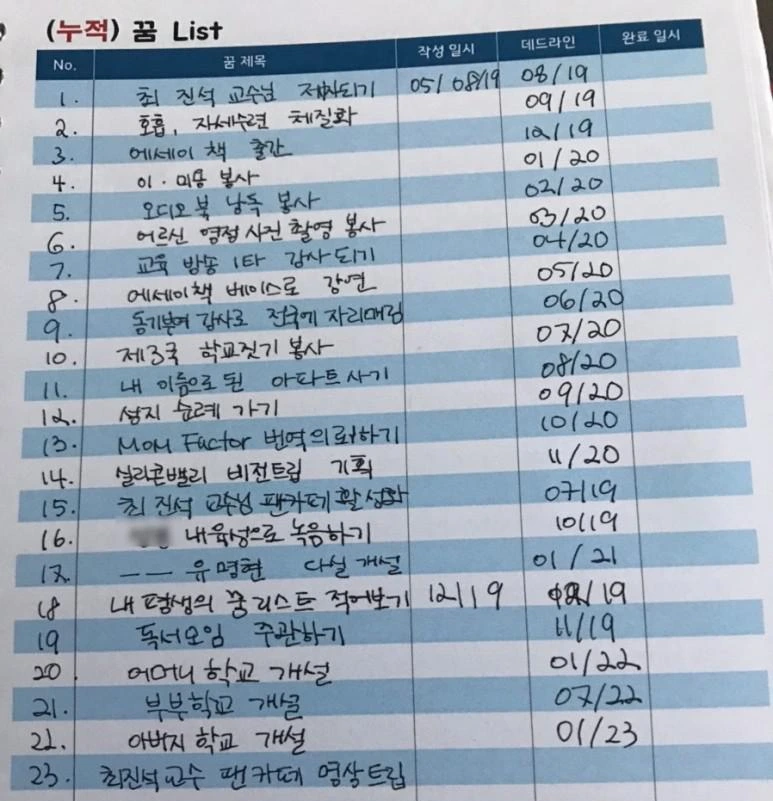 (누적) 꿈 List
No. 꿈 제목 작성 일시 데드라인 완료 일시
1. 최 진석 교수님 제자되기 05/08/19 08/19
2. 호흡, 자세수련 체질화 09/19
3. 에세이 책 출간 12/19
4. 이·미용 봉사 01/20
5. 오디오 북 낭독 봉사 02/20
6. 어르신 영정 사진 촬영 봉사 03/20
7. 교육 방송 1타 강사 되기 04/20
8. 에세이책 베이스로 강연 05/20
9. 동기부여 강사로 전국에 자리매김 06/20
10. 제3국 학교짓기 봉사 07/20
11. 내 이름으로 된 아파트 사기 08/20
12. 성지 순례 가기 09/20
13. Mom Factor 번역의뢰하기 10/20
14. 실리콘밸리 비전트립 기획 11/20
15. 최 진석 교수님 팬카페 활성화 07/19
16. 내 육성으로 녹음하기 10/19
17. —— 유명현 다실 개설 01/21
18 내 평생의 꿈 리스트 적어보기 12/19 12/19
19 독서모임 주관하기 11/19
20 어머니 학교 개설 01/22
21. 부부학교 개설 07/22
22. 아버지 학교 개설 01/23
23. 최진석교수 팬카페 영상트립